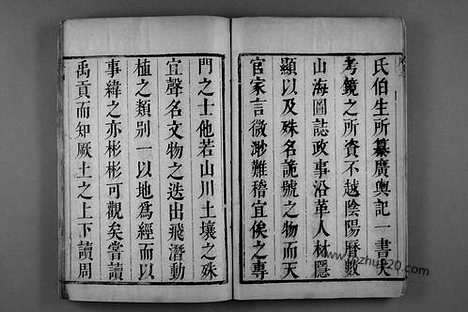 氏伯生所纂廣輿記一書夫
考鏡之所資不越陰陽曆數
山海圖誌政事沿革人材隱
顯以及殊名詭號之物而天
官家言微渺難稽宜俟之專
門之士他若山川土壤之殊
宜聲名文物之迭出飛潛動
植之類別一以地爲經而以
事緯之亦彬彬可觀矣嘗讀
禹貢而知厥土之上下讀周